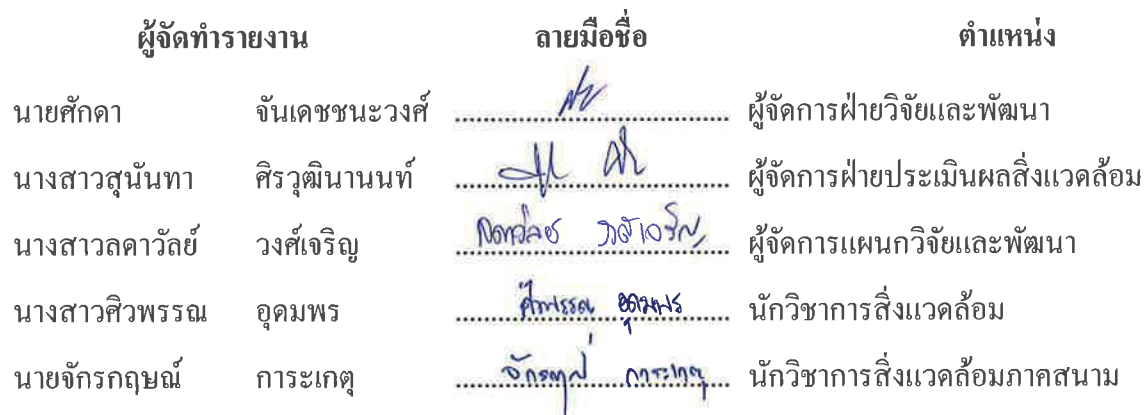 ผู้จัดทำรายงาน ลายมือชื่อ ตำแหน่ง
นายศักดา จันเดชชนะวงศ์ ผู้จัดการฝ่ายวิจัยและพัฒนา
นางสาวสุนันทา ศิรวุฒินานนท์ ผู้จัดการฝ่ายประเมินผลสิ่งแวดล้อม
นางสาวลดาวัลย์ วงศ์เจริญ ลดาวัลย์ วงศ์เจริญ ผู้จัดการแผนกวิจัยและพัฒนา
นางสาวศิวพรรณ อุดมพร ศิวพรรณ อุดมพร นักวิชาการสิ่งแวดล้อม
นายจักรกฤษณ์ การะเกตุ จักรกฤษณ์ การะเกตุ นักวิชาการสิ่งแวดล้อมภาคสนาม